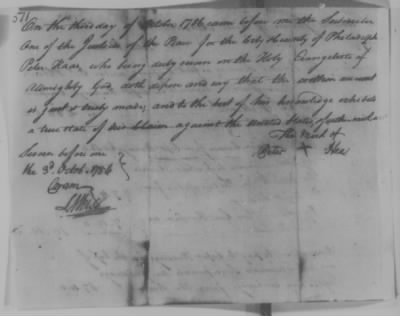 571
On the third day of October 1786 came before me the Subscriber
One of the Justices of the Peace for the City & County of Philadelpa
Peter Haas, who being duly sworn on the Holy Evangelists of
Almighty God, doth depose and say that the written account
is just & truly made, and to the best of his knowledge exhibits
a true state of his Claim against the United States of
Sworn before me
The Mark of
the 3d. Octobr. 1786
Peter X Has
Coram